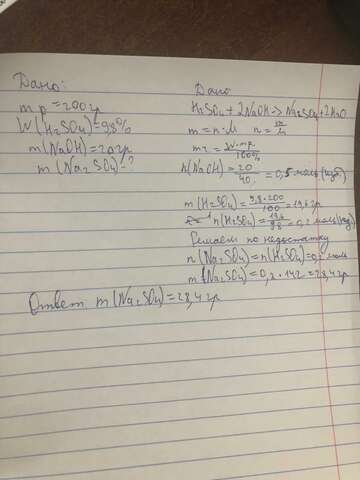 Дано:
m р = 200 гр
W(H₂SO₄) = 9,8%
m(NaOH) = 20 гр
m(Na₂SO₄) - ?
Дано
H₂SO₄ + 2NaOH → Na₂SO₄ + 2H₂O
m = n · M n = m/M
m = w·mр./100%
n(NaOH) = 20/40 = 0,5 моль (изб)
m(H₂SO₄) = 9,8·200/100 = 19,6 гр
n(H₂SO₄) = 19,6/98 = 0,2 моль (нед)
Решаем по недостатку
n(Na₂SO₄) = n(H₂SO₄) = 0,2 моль
m(Na₂SO₄) = 0,2 · 142 = 28,4 гр
Ответ m(Na₂SO₄) = 28,4 гр